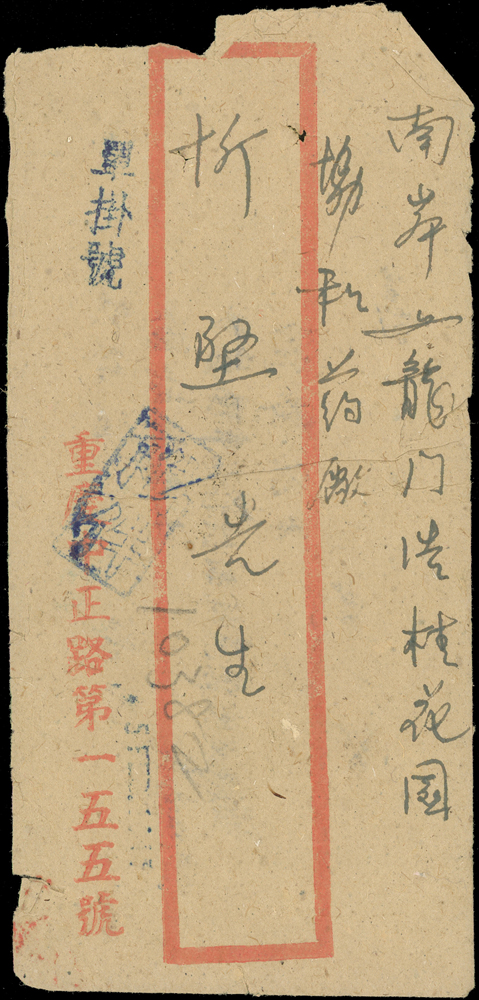 南岸上龍门浩桂花園
協和药廠
忻 先生
單掛號
重慶中正路第一五五號